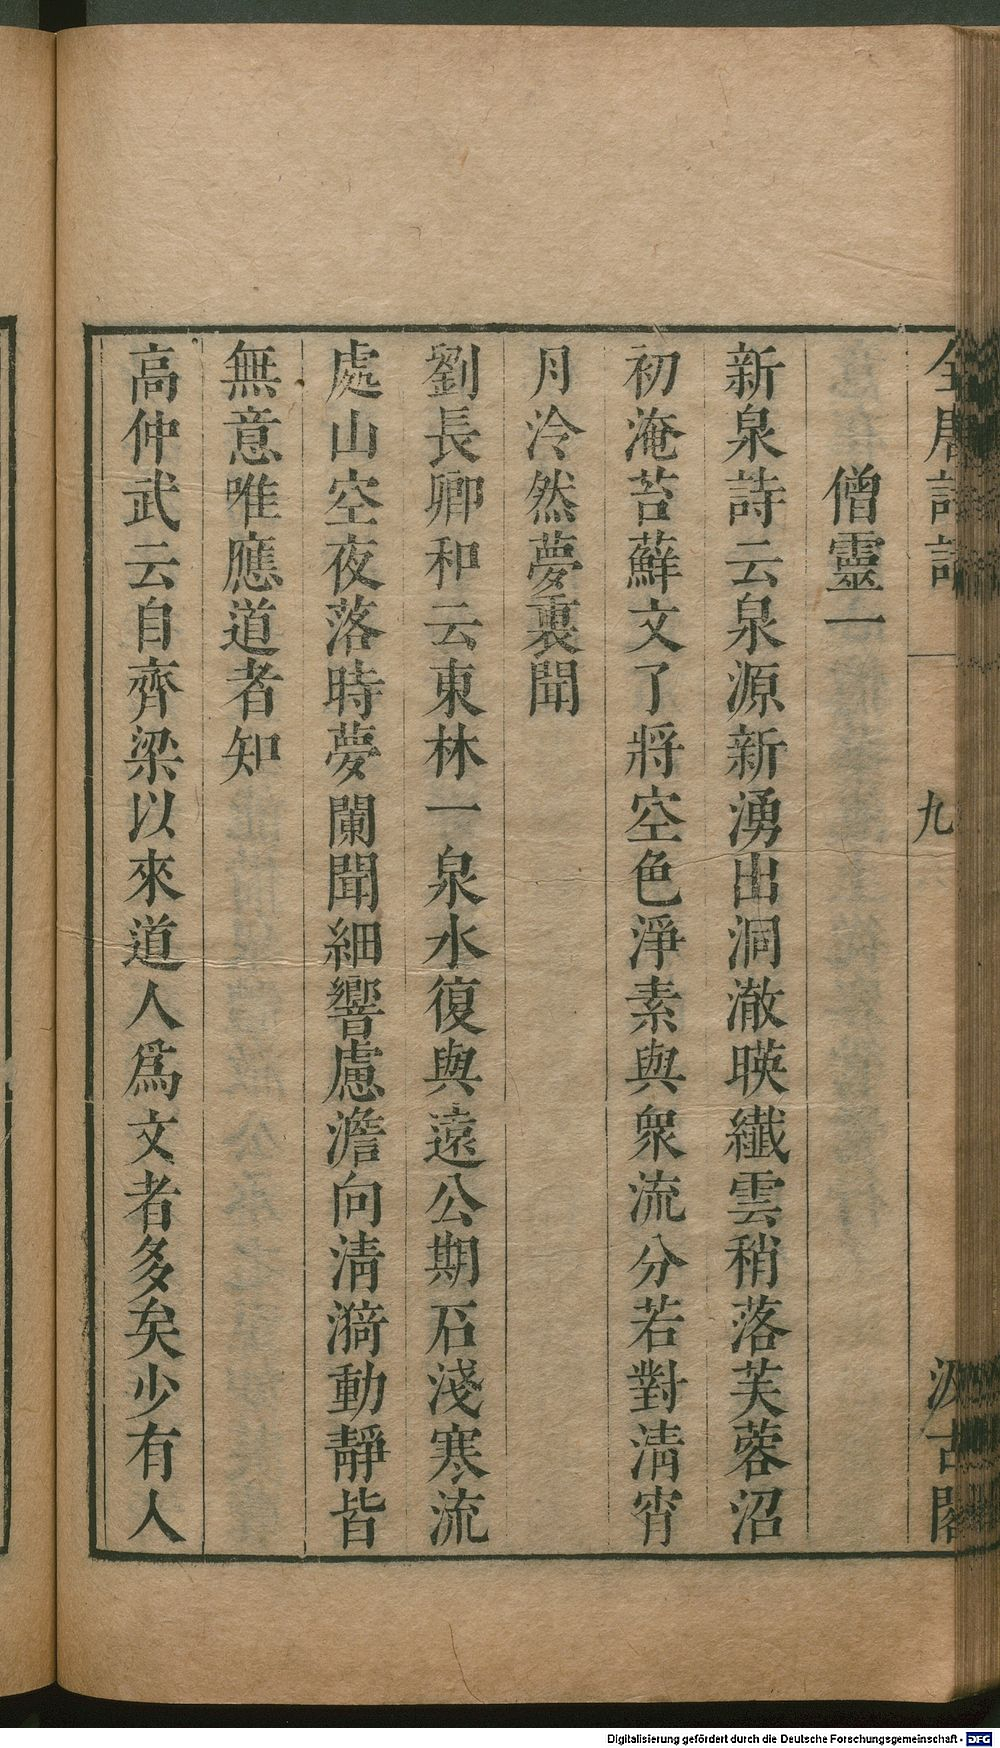 全唐詩話
九
汲古閣
僧靈一
新泉詩云泉源新湧出洞澈暎纎雲稍落芙蓉沼
初淹苔蘚文了將空色淨素與衆流分若對淸宵
月泠然夢裏聞
劉長卿和云東林一泉水復與遠公期石淺寒流
處山空夜落時夢闌聞細響慮澹向淸漪動靜皆
無意唯應道者知
高仲武云自齊梁以來道人爲文者多矣少有人
Digitalisierung gefördert durch die Deutsche Forschungsgemeinschaft - DFG